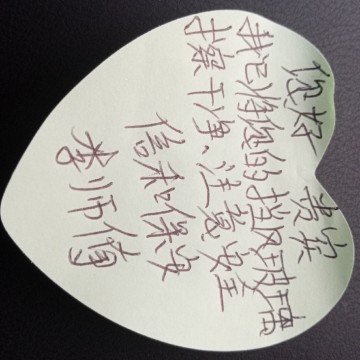 您好 贵宾
我已将您的挡风玻璃
擦干净、注意安全
信和保安
李师傅